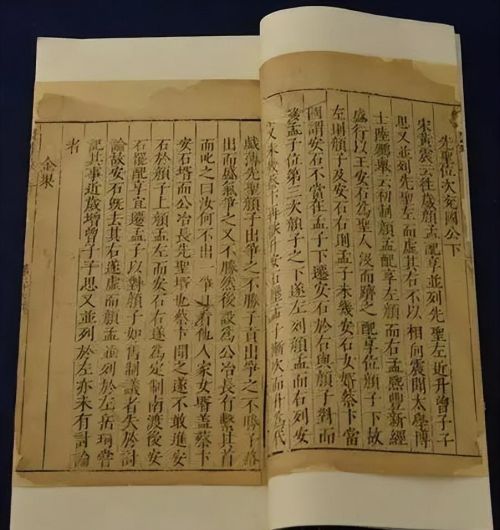 先聖位次兗國公下
宋黃震云往歲顏孟配享並列先聖左近升曾子子
思又並列先聖左而虛其右不以相向震聞太學博
士陸鵬舉云初制顏孟配享左顏而右孟熙豐新經
盛行以王安石為聖人沒而躋之配享位顏子下故
左則顏子及安石右則孟子未幾安石女婿蔡卞當
國謂安石不當在孟子下遷安石於右與顏子對而
移孟子位第三次顏子之下遂左列顏孟而右列安
又未幾蔡卞再欲升安石壓孟子漸次而升為代
戲薄先聖顏子出爭之不勝子貢出爭之不勝子路
出而盛氣爭之又不勝然後設為公冶長有擊其首
而叱之曰汝何不出一爭看他人家女婿蓋蔡卞
安石婿而公冶長先聖婿也蔡卞聞之遂不敢進安
石於顏子上顏孟左而安石右遂為定制南渡後安
石罷配享宜遷孟子以對顏子如舊制議者失於討
論故安石既去其右遂虛而顏孟並列於左岳珂嘗
記其事近歲增曾子子思又並列於左亦未有討論
者